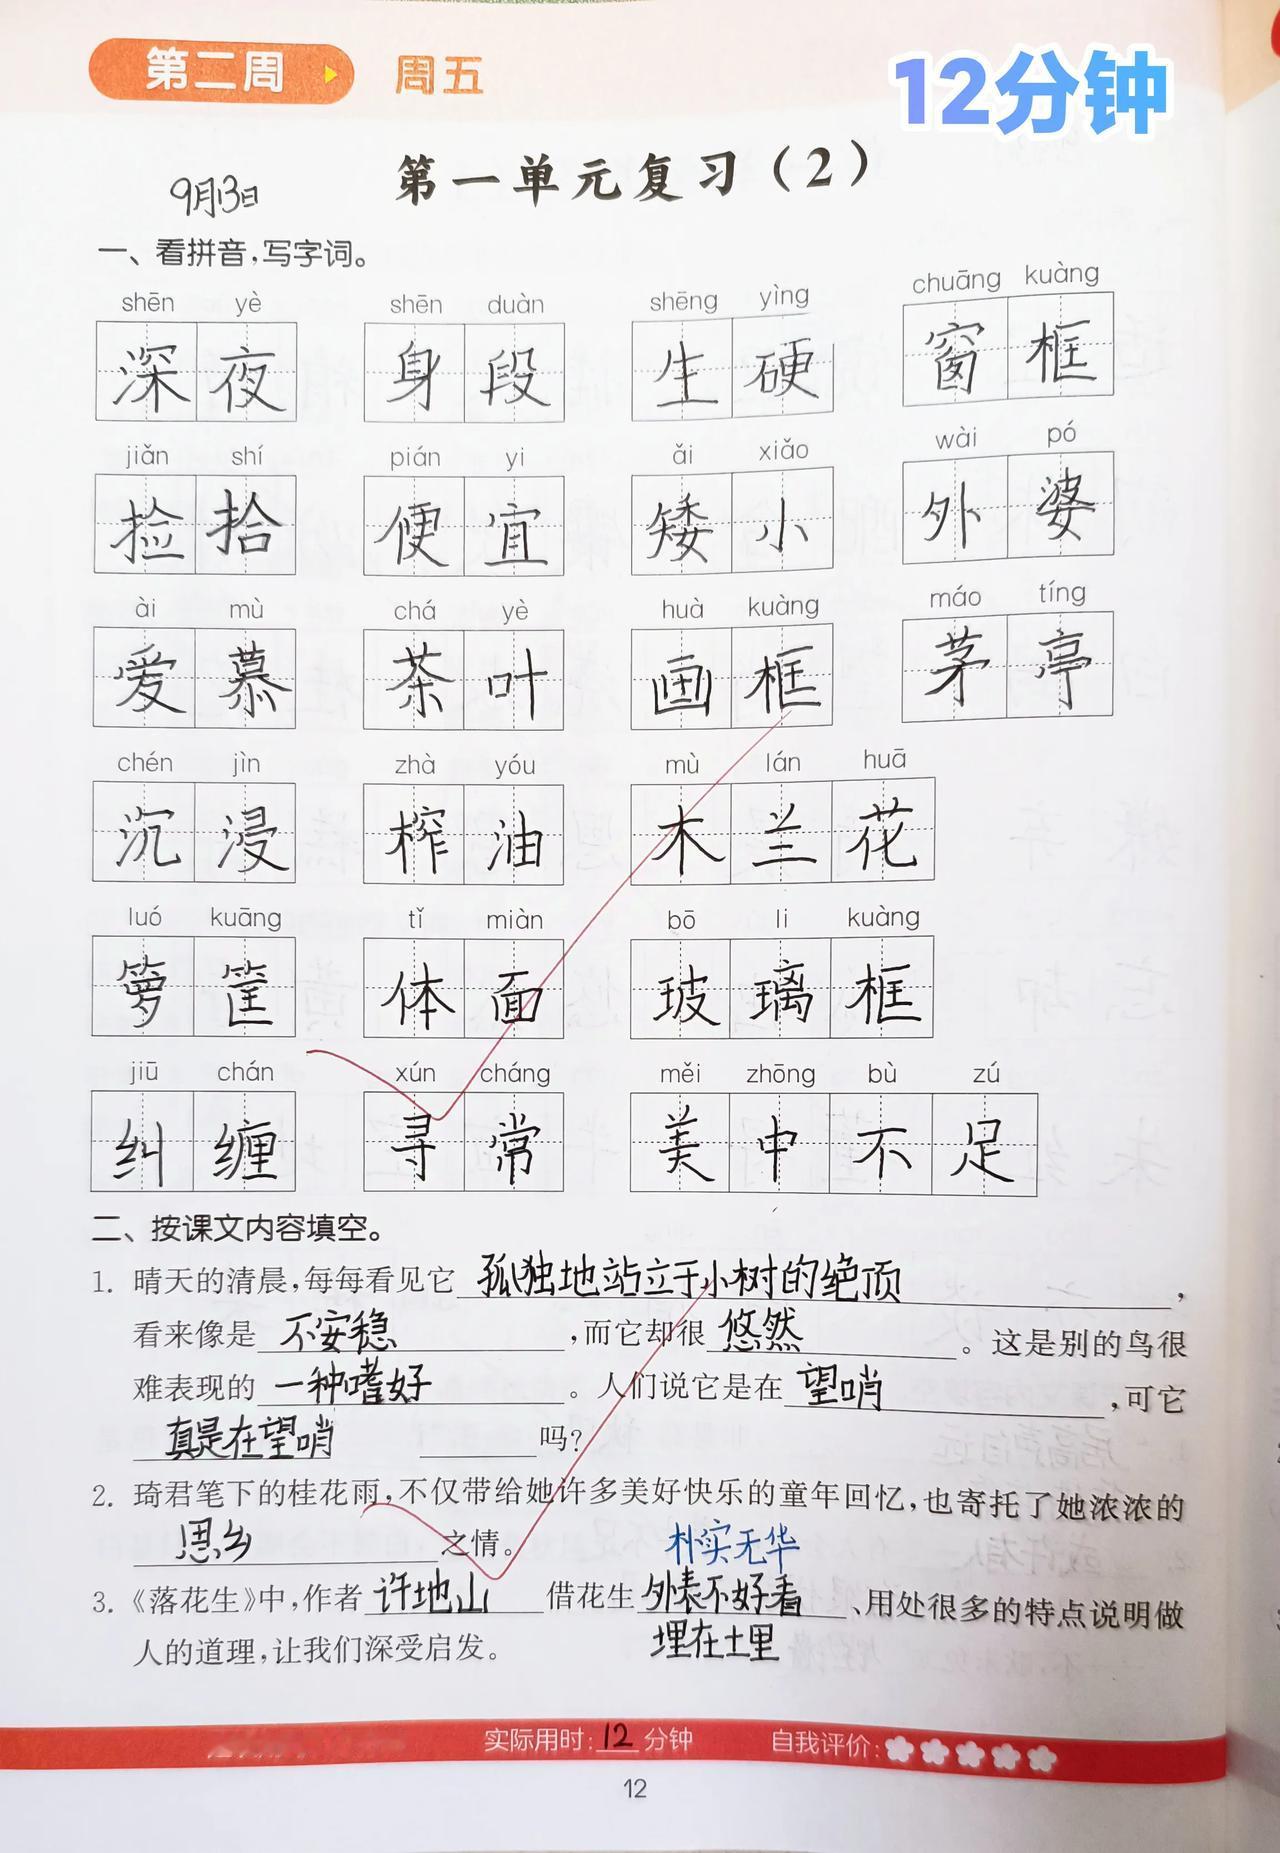 第二周 周五 12分钟
第一单元复习（2）
9月13日
一、看拼音，写字词。
shēn yè shēn duàn shēng yìng chuāng kuàng
深夜 身段 生硬 窗框
jiǎn shí pián yi ǎi xiǎo wài pó
捡拾 便宜 矮小 外婆
ài mù chá yè huà kuàng máo tíng
爱慕 茶叶 画框 茅亭
chén jìn zhà yóu mù lán huā
沉浸 榨油 木兰花
luó kuāng tǐ miàn bō li kuàng
箩筐 体面 玻璃框
jiū chán xún cháng měi zhōng bù zú
纠缠 寻常 美中不足
二、按课文内容填空。
1. 晴天的清晨，每每看见它孤独地站立于小树的绝顶，
看来像是不安稳，而它却很悠然。这是别的鸟很
难表现的一种嗜好。人们说它是在望哨，可它
真是在望哨吗？
2. 琦君笔下的桂花雨，不仅带给她许多美好快乐的童年回忆，也寄托了她浓浓的
思乡之情。
朴实无华
3.《落花生》中，作者许地山借花生外表不好看、用处很多的特点说明做
埋在土里
人的道理，让我们深受启发。
实际用时：12分钟 自我评价：
12